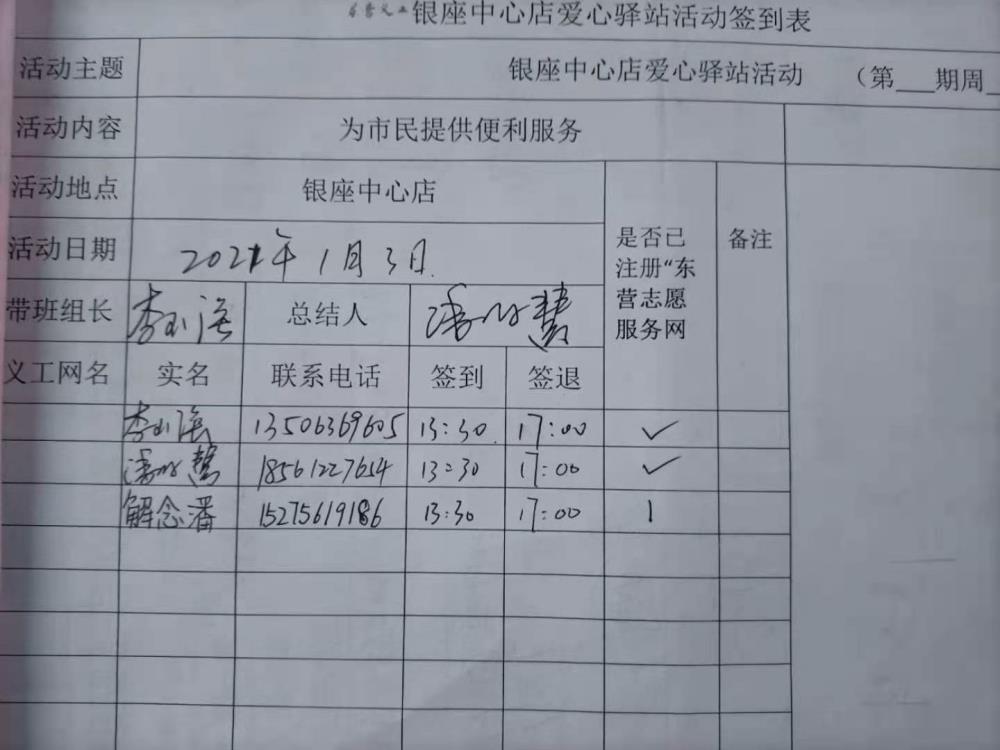 银座中心店爱心驿站活动签到表
活动主题 银座中心店爱心驿站活动 （第___期周_
活动内容 为市民提供便利服务
活动地点 银座中心店
活动日期 2021年1月3日.
是否已注册“东营志愿服务网
备注
带班组长 李 总结人 潘 慧
义工网名 实名 联系电话 签到 签退
李 13506369605 13:30 17:00 ✓
潘 慧 18561227654 13:30 17:00 ✓
解念潘 15275619186 13:30 17:00 1